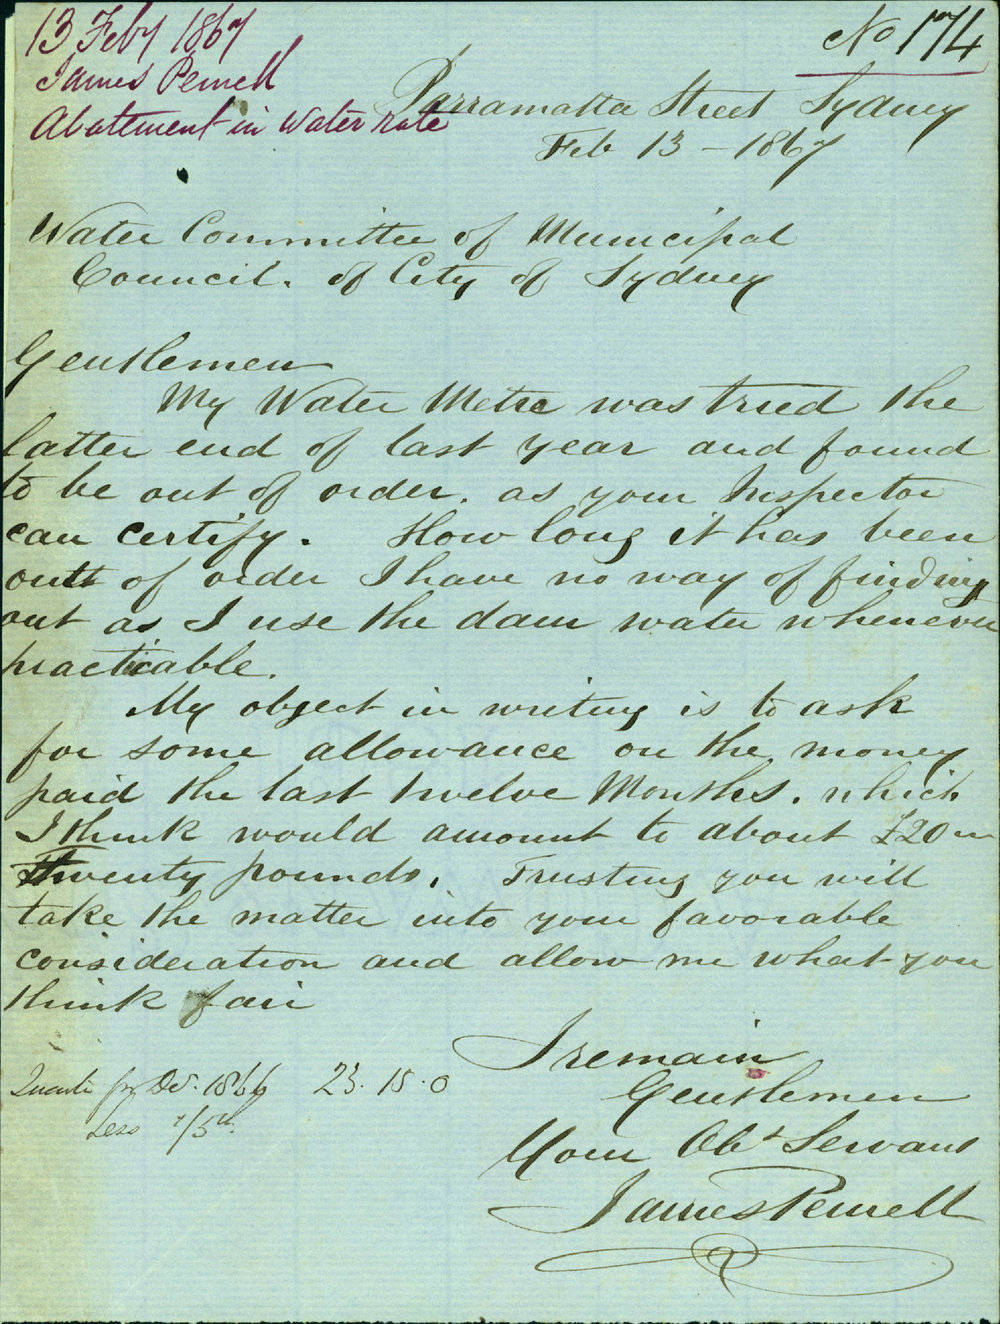 13 Feby 1867
James Pemell
Abatement in Water rate
No 174
Parramatta Street Sydney
Feb 13 - 1867
Water Committee of Municipal
Council. of City of Sydney
Gentlemen
My Water Metre was tried the
latter end of last year and found
to be out of order. as your Inspector
can certify. How long it has been
out of order I have no way of finding
out as I use the dam water whenever
practicable.
My object in writing is to ask
for some allowance on the money
paid the last twelve Months. which
I think would amount to about £20
Twenty pounds. Trusting you will
take the matter into your favorable
consideration and allow me what you
think fair
I remain
Gentlemen
Your Obt Servant
James Pemell
Quarter for Dec. 1866 23.15.0
Less 1/5th.